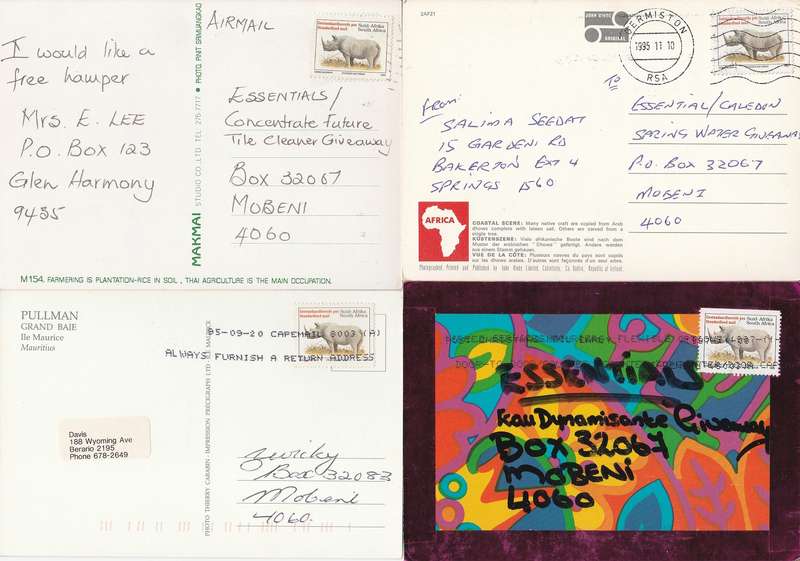 I would like a
free hamper
Mrs. E. LEE
P.O. Box 123
Glen Harmony
9435
MAKMAI STUDIO CO.,LTD. TEL. 276-7717 • PHOTO. PINIT SRIMUANGKAO
AIRMAIL
Suid-Afrika
South Africa
ESSENTIALS/
Concentrate Future
Tile Cleaner Giveaway
Box 32067
MOBENI
4060
M154. FARMERING IS PLANTATION-RICE IN SOIL , THAI AGRICULTURE IS THE MAIN OCCUPATION.
2AF21
JOHN HINDE
ORIGINAL
GERMISTON
1995 11 10
RSA
Suid-Afrika
South Africa
From:
SALIMA SEEDAT
15 GARDENI RD
BAKERTON EXT 4
SPRINGS 1560
To
ESSENTIAL/CALEDON
SPRING WATER GIVEAWAY
P.O. BOX 32067
MOBENI
4060
AFRICA
COASTAL SCENE: Many native craft are copied from Arab
dhows complete with lateen sail. Others are carved from a
single tree.
KÜSTENSZENE: Viele afrikanische Boote sind nach dem
Muster der arabischen "Dhows" gefertigt. Andere werden
aus einem Stamm gehauen.
VUE DE LA CÔTE: Plusieurs canots du pays sont copiés
sur les dhows arabes. D'autres sont façonnés d'un seul arbre.
Photographed, Printed and Published by John Hinde Limited, Cabinteely, Co. Dublin, Republic of Ireland.
PULLMAN
GRAND BAIE
Ile Maurice
Mauritius
Suid-Afrika
South Africa
95-09-20 CAPEMAIL 8003 (A)
ALWAYS FURNISH A RETURN ADDRESS
Davis
188 Wyoming Ave
Berario 2195
Phone 678-2649
PHOTO THIERRY CARABIN - IMPRESSION PRECIGRAPH LTD ILE MAURICE
Box 32083
Mobeni
4060.
Suid-Afrika
South Africa
ESSENTIALS
Eau Dynamisante Giveaway
Box 32067
MOBENI
4060